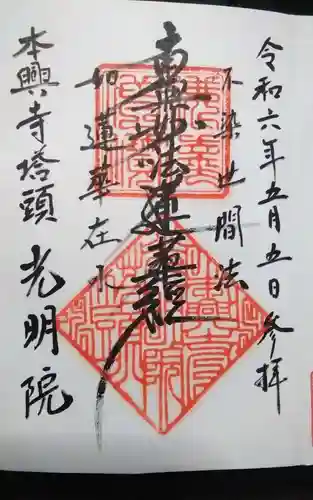 令和六年五月五日参拝
不染世間法
南無妙法蓮華経
如蓮華在水
本興寺塔頭 光明院